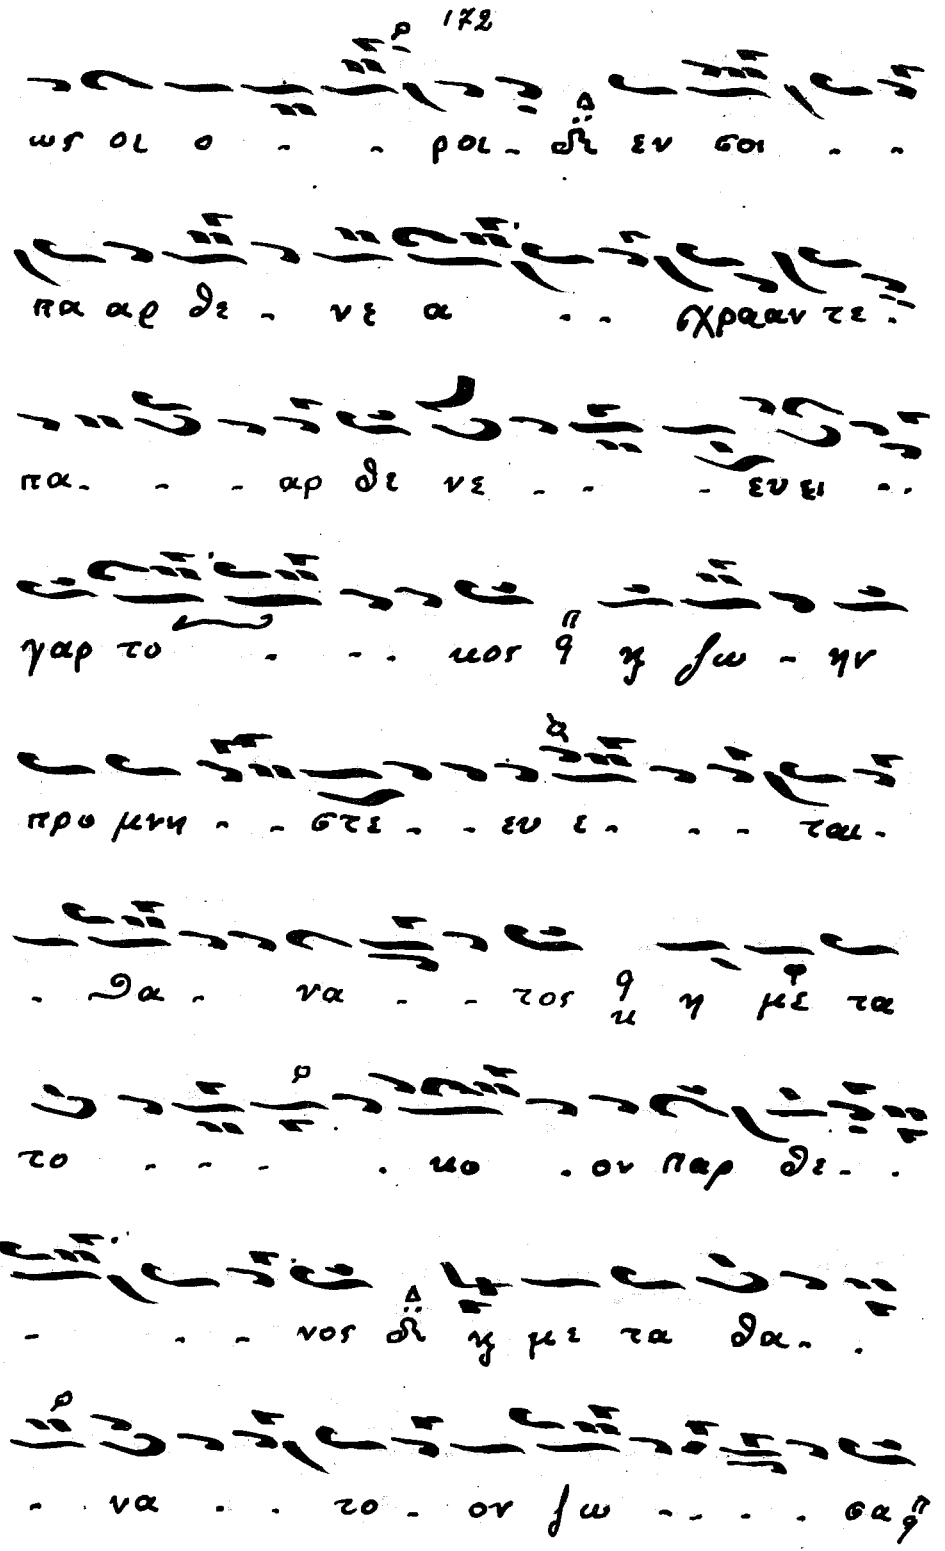 172
ως οι ο - - ροι - Δ δι εν σοι - -
πα αρ θε - νε α - - χρααν τε -
πα - - - αρ θε νε - - - ευ ει - -
γαρ το - - - κος π q ϗ ζω - ην
προ μνη - - στε - - ευ ε - - - ται -
- θα - να - - τος q κ η με τα
το - - - - κο - ον παρ θε - -
- - - νος Δ δι ϗ με τα θα - -
- - να - - το - ον ζω - - - - σα π q